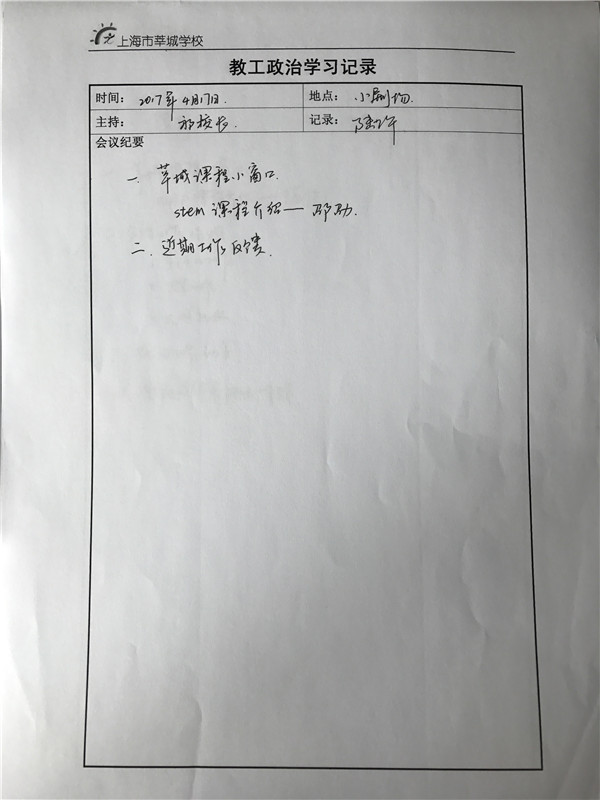 上海市莘城学校
教工政治学习记录
时间: 2017年4月17日. 地点: 小剧场.
主持: 校长. 记录:
会议纪要
一. 莘城课程小窗口.
stem 课程介绍——
二. 近期工作反馈.